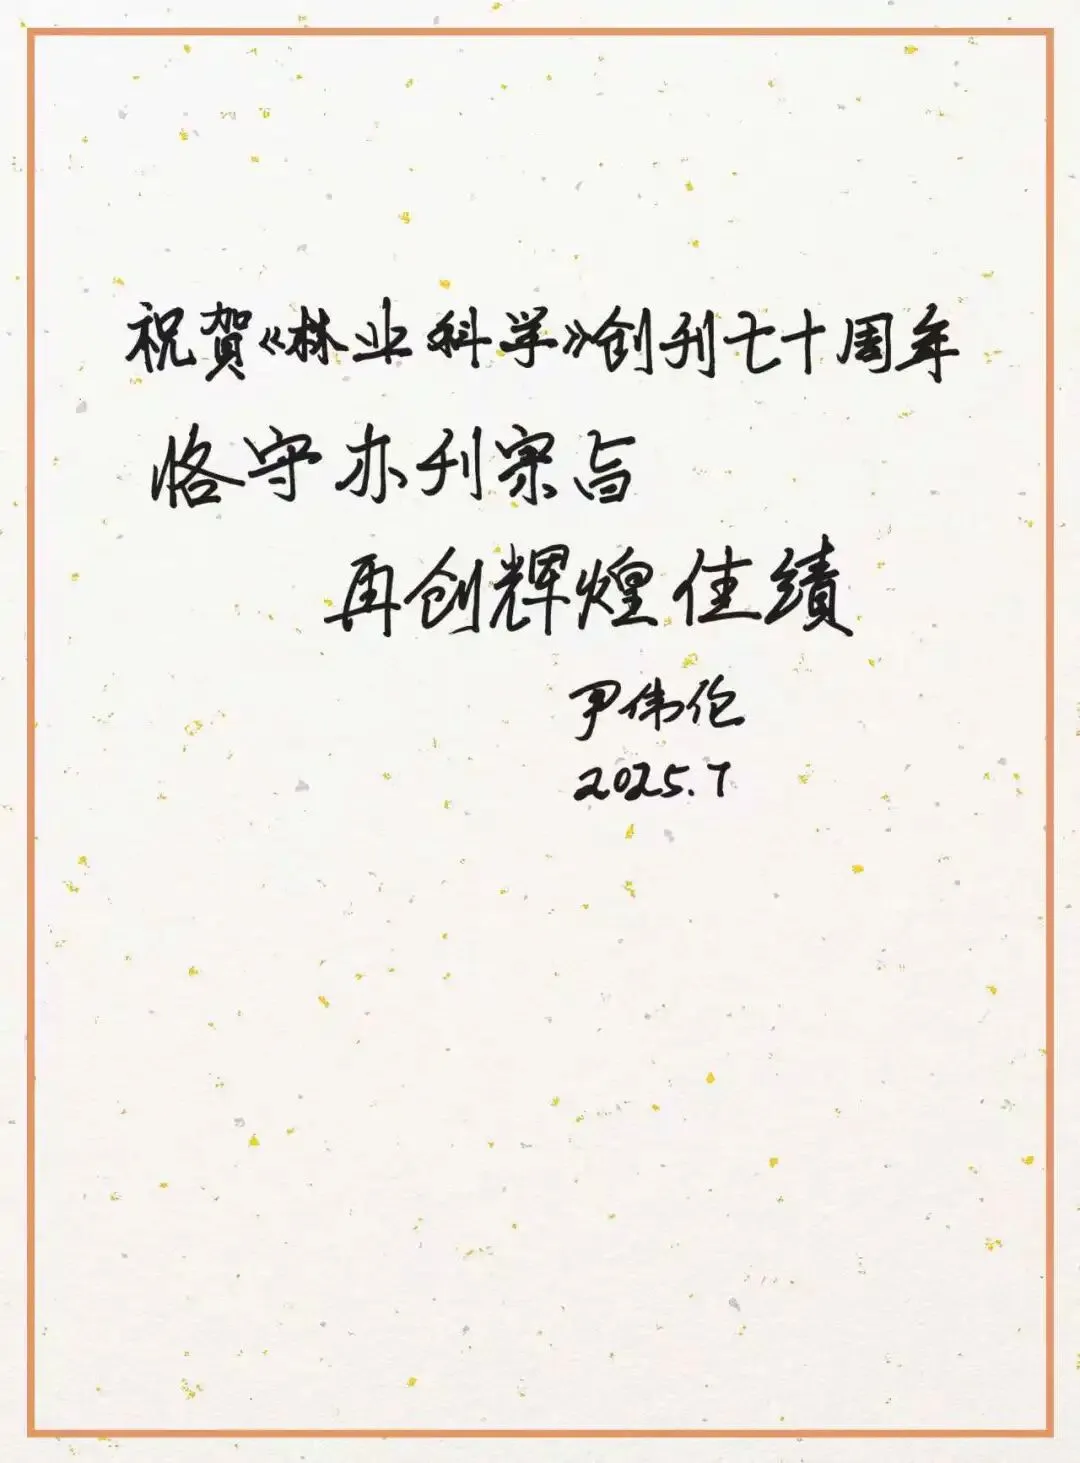 祝賀《林业科学》创刊七十周年
恪守办刊宗旨
再创辉煌佳绩
尹伟伦
2025.7